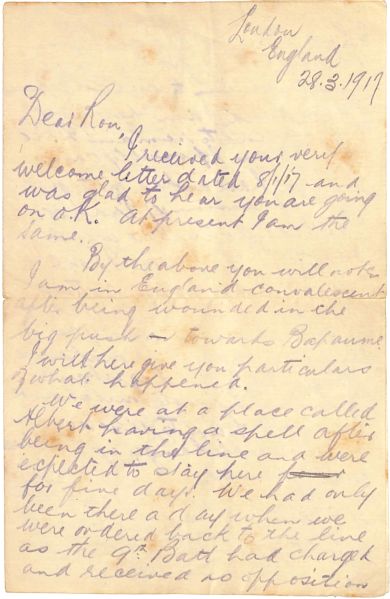 London
England
28.3.1917
Dear Ron,
I received your very
welcome letter dated 8/1/17 and
was glad to hear you are going
on o.k. At present I am the
same.
By the above you will note
I am in England convalescent
after being wounded in the
big push – towards Bapaume
I will here give you particulars
of what happened.
We were at a place called
Albert having a spell after
being in the line and were
expected to stay here
for five days. We had only
been there a day when we
were ordered back to the line
as the 9th Batt had charged
and received no opposition